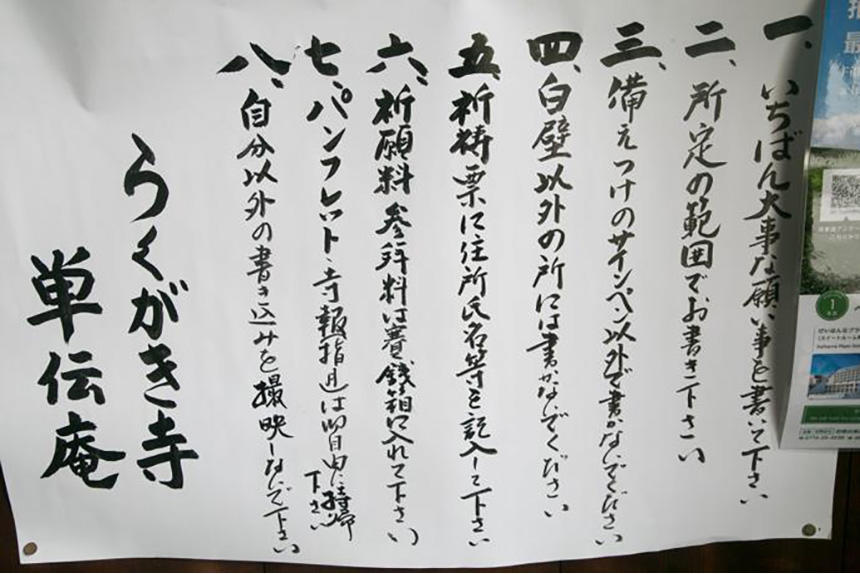 一、いちばん大事な願い事を書いて下さい
二、所定の範囲でお書き下さい
三、備えつけのサインペン以外で書かないでください
四、白壁以外の所には書かないでください
五、祈祷票に住所氏名等を記入して下さい
六、祈願料参拝料は賽銭箱に入れて下さい
七、パンフレット・寺報指月は御自由に御持帰下さい
八、自分以外の書き込みを撮映しないで下さい
らくがき寺
単伝庵